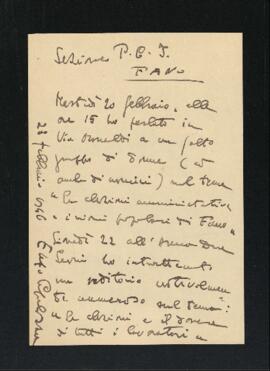 Sezione P.C.I.
FANO
Martedì 20 febbraio, alle
ore 15 ho parlato in
Via a un folto
gruppo di donne (
anche di uomini) sul tema
"Le elezioni amministrative
e i rioni popolari di Fano"
Giovedì 22 all'
ho intrattenuto
un uditorio
numeroso sul tema:
"Le elezioni e il dovere
di tutti i lavoratori a
23 febbraio 1946